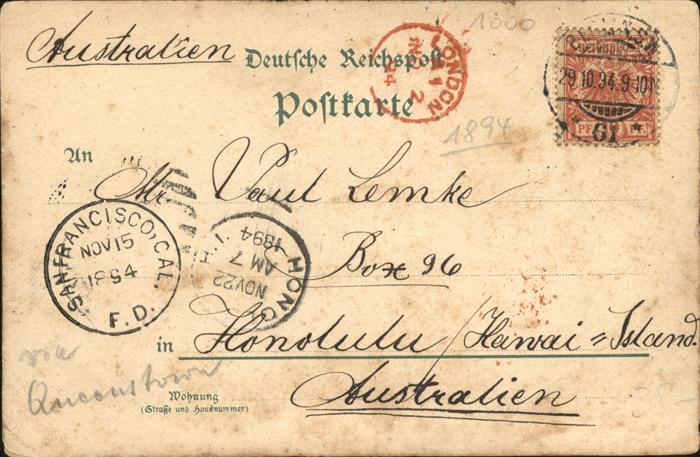 Australien
Deutsche Reichspost
Postkarte
1000
LONDON
1 2
94
REICHSPOST
29.10.94.9-10N
* 61 *
1894
An
Mr. Paul Lemke
SAN FRANCISCO, CAL.
NOV 15
1894
F.D.
HONO
NOV 22
AM 7
1894
Box 96
in Honolulu / Hawai = Island.
Australien
via
Queenstown
Wohnung
(Straße und Hausnummer)